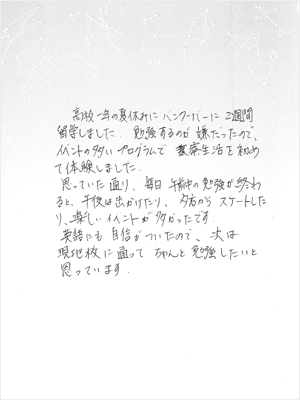 高校一年の夏休みにバンクーバーに2週間
留学しました。勉強するのが嫌だったので、
イベントの多いプログラムで寮生活を初め
て体験しました。
思っていた通り、毎日午前中の勉強が終わ
ると、午後は出かけたり、夕方からスケートした
り、楽しいイベントが多かったです。
英語にも自信がついたので、次は
現地校に通ってちゃんと勉強したいと
思っています。